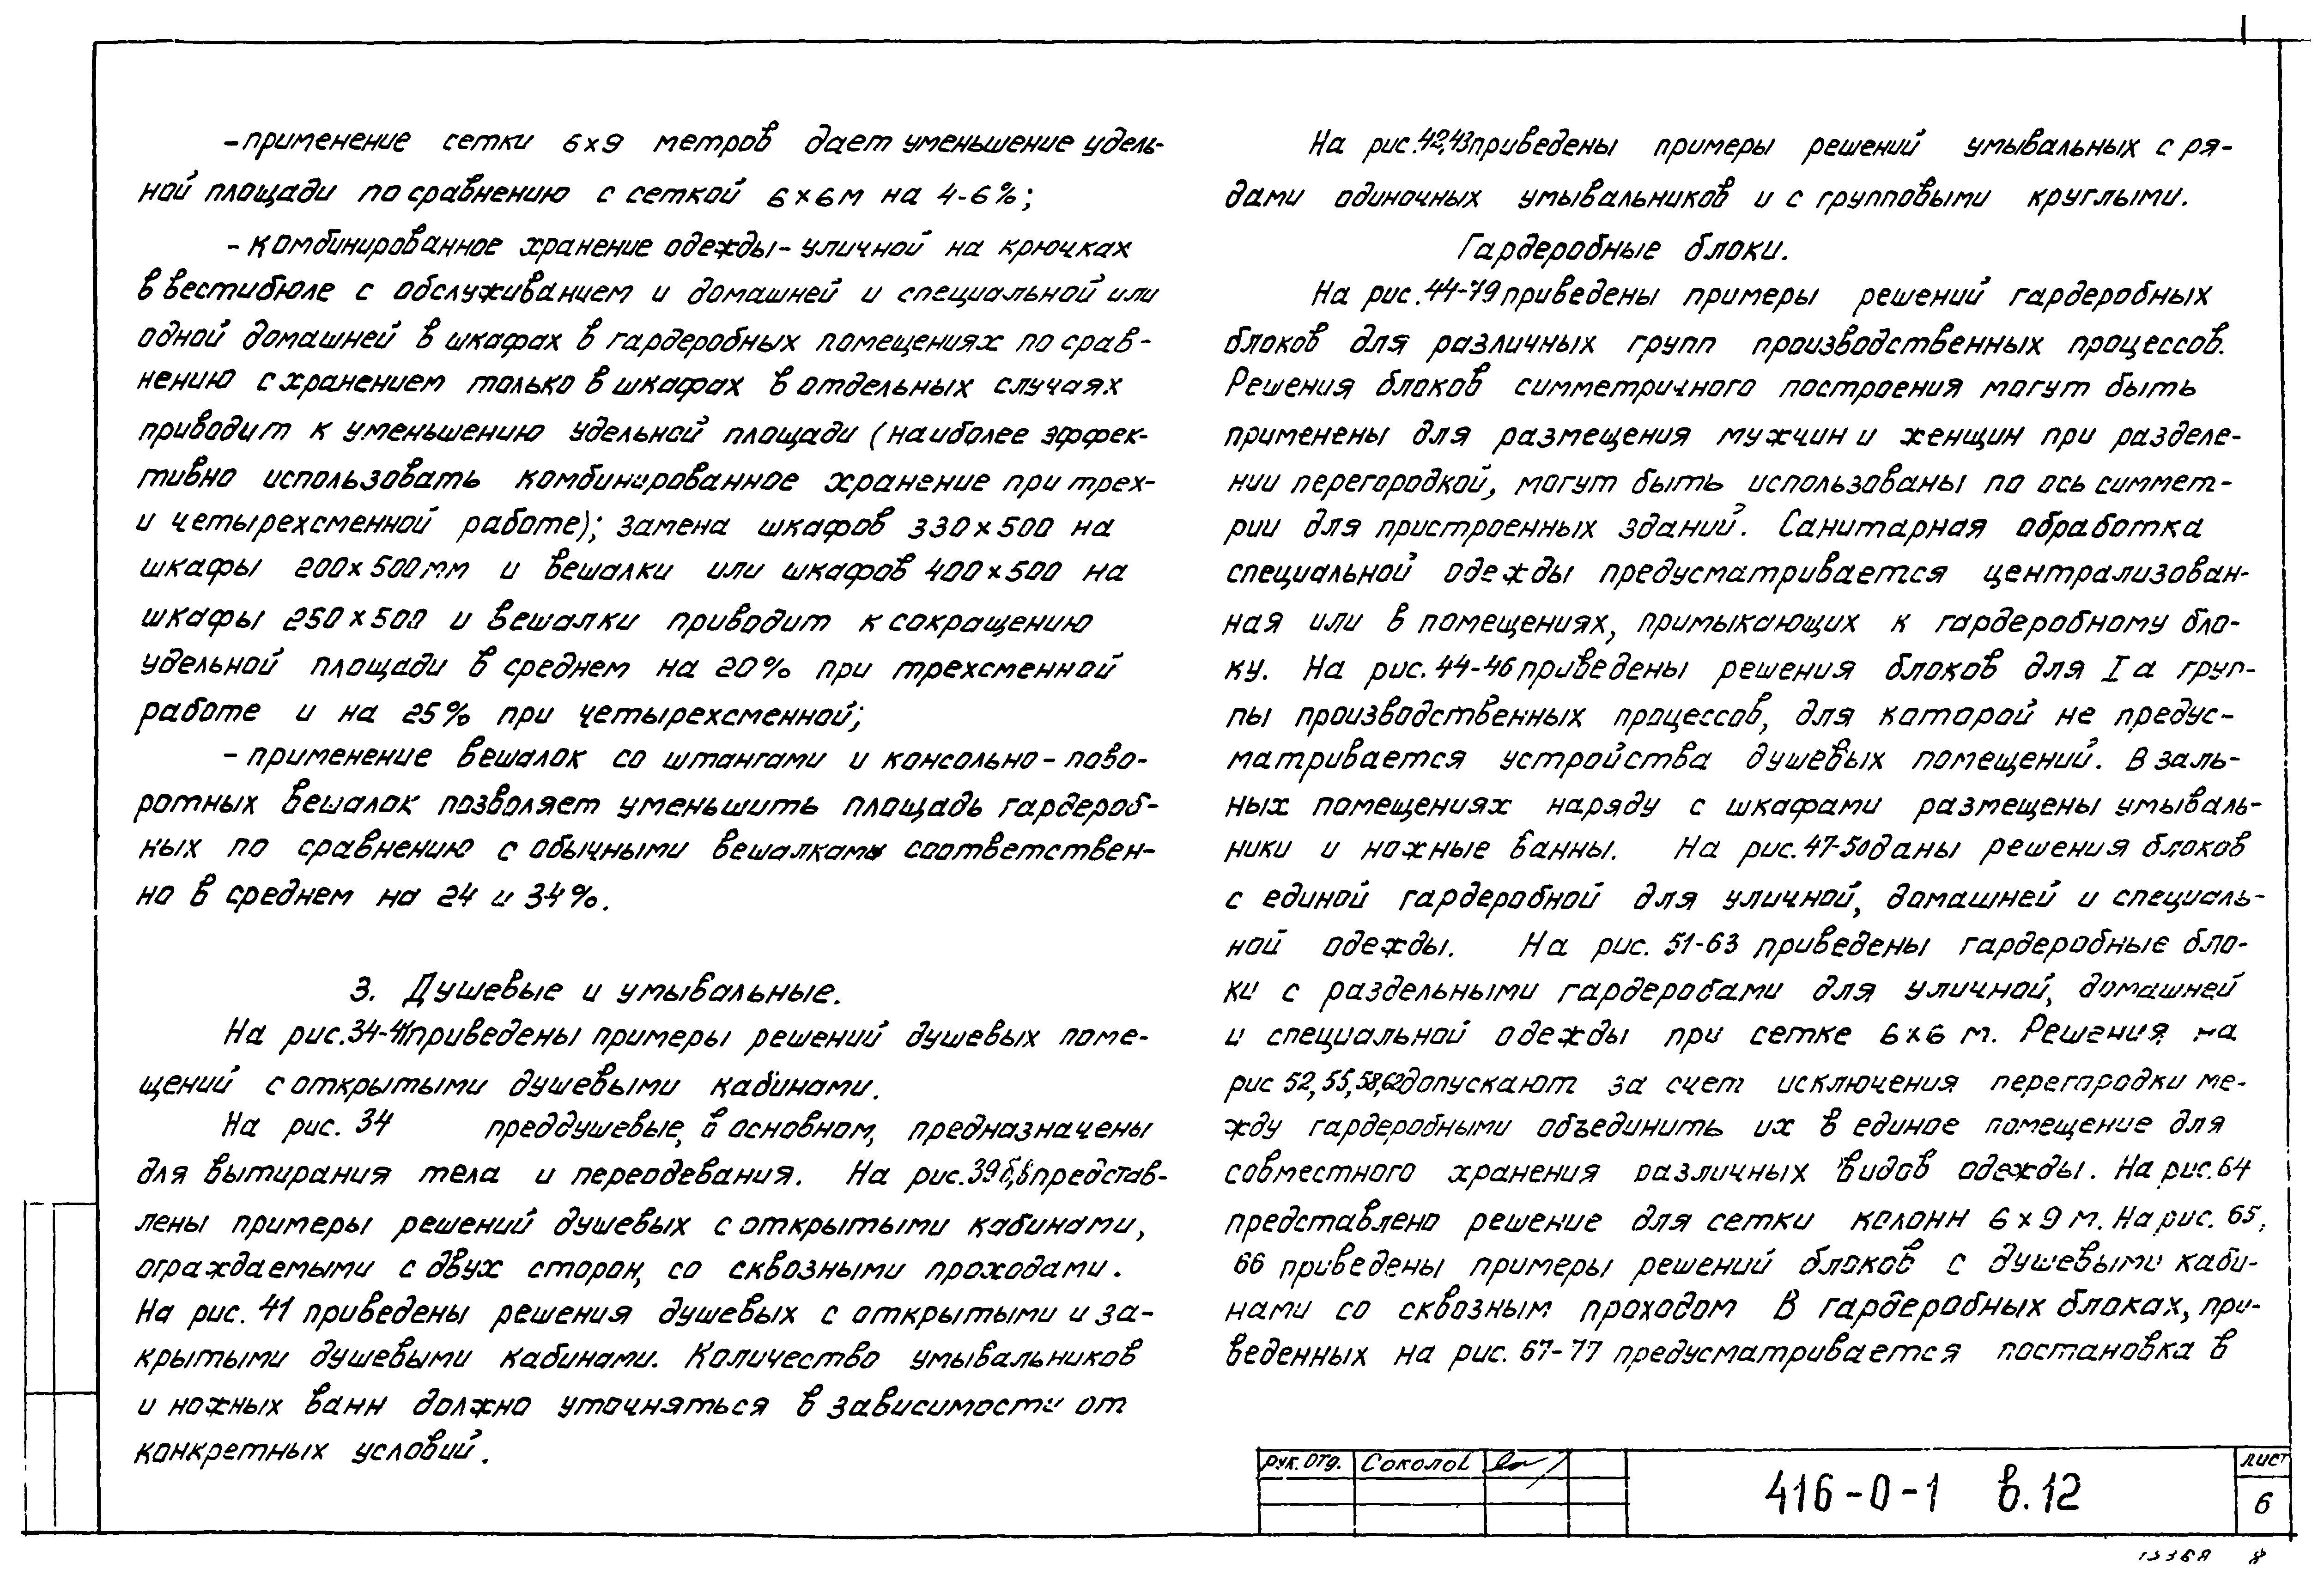 - применение сетки 6×9 метров дает уменьшение удель-
ной площади по сравнению с сеткой 6×6м на 4-6%;
- комбинированное хранение одежды - уличной на крючках
в вестибюле с обслуживанием и домашней и специальной или
одной домашней в шкафах в гардеробных помещениях по срав-
нению с хранением только в шкафах в отдельных случаях
приводит к уменьшению удельной площади (наиболее эффек-
тивно использовать комбинированное хранение при трех-
и четырехсменной работе); замена шкафов 330×500 на
шкафы 200×500мм и вешалки или шкафов 400×500 на
шкафы 250×500 и вешалки приводит к сокращению
удельной площади в среднем на 20% при трехсменной
работе и на 25% при четырехсменной;
- применение вешалок со штангами и консольно-пово-
ротных вешалок позволяет уменьшить площадь гардероб-
ных по сравнению с обычными вешалками соответствен-
но в среднем на 24 и 34%.
3. Душевые и умывальные.
На рис.34-41приведены примеры решений душевых поме-
щений с открытыми душевыми кабинами.
На рис. 34 преддушевые, в основном, предназначены
для вытирания тела и переодевания. На рис.39б,в представ-
лены примеры решений душевых с открытыми кабинами,
ограждаемыми с двух сторон, со сквозными проходами.
На рис. 41 приведены решения душевых с открытыми и за-
крытыми душевыми кабинами. Количество умывальников
и ножных ванн должно уточняться в зависимости от
конкретных условий.
На рис.42,43приведены примеры решений умывальных с ря-
дами одиночных умывальников и с групповыми круглыми.
Гардеробные блоки.
На рис.44-79приведены примеры решений гардеробных
блоков для различных групп производственных процессов.
Решения блоков симметричного построения могут быть
применены для размещения мужчин и женщин при разделе-
нии перегородкой, могут быть использованы по ось симмет-
рии для пристроенных зданий. Санитарная обработка
специальной одежды предусматривается централизован-
ная или в помещениях, примыкающих к гардеробному бло-
ку. На рис.44-46приведены решения блоков для Iа груп-
пы производственных процессов, для которой не предус-
матривается устройства душевых помещений. В заль-
ных помещениях наряду с шкафами размещены умываль-
ники и ножные ванны. На рис.47-50даны решения блоков
с единой гардеробной для уличной, домашней и специаль-
ной одежды. На рис. 51-63 приведены гардеробные бло-
ки с раздельными гардеробами для уличной, домашней
и специальной одежды при сетке 6×6 м. Решения на
рис 52,55,58,62допускают за счет исключения перегородки ме-
жду гардеробными объединить их в единое помещение для
совместного хранения различных видов одежды. На рис.64
представлено решение для сетки колонн 6×9м. На рис. 65,
66 приведены примеры решений блоков с душевыми каби-
нами со сквозным проходом В гардеробных блоках, при-
веденных на рис. 67-77 предусматривается постановка в
Рук. отд. Соколов
416-0-1 в.12
лист
6
8